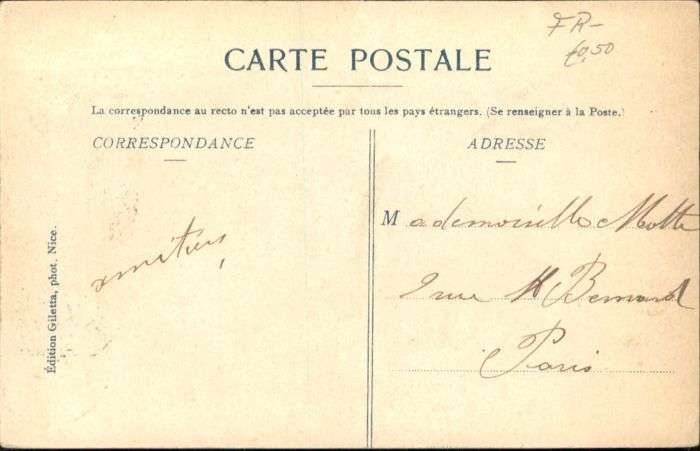 FR-
€0,50
CARTE POSTALE
La correspondance au recto n'est pas acceptée par tous les pays étrangers. (Se renseigner à la Poste.)
CORRESPONDANCE
ADRESSE
Édition Giletta, phot. Nice.
Mademoiselle Motte
rue Bernard
Paris